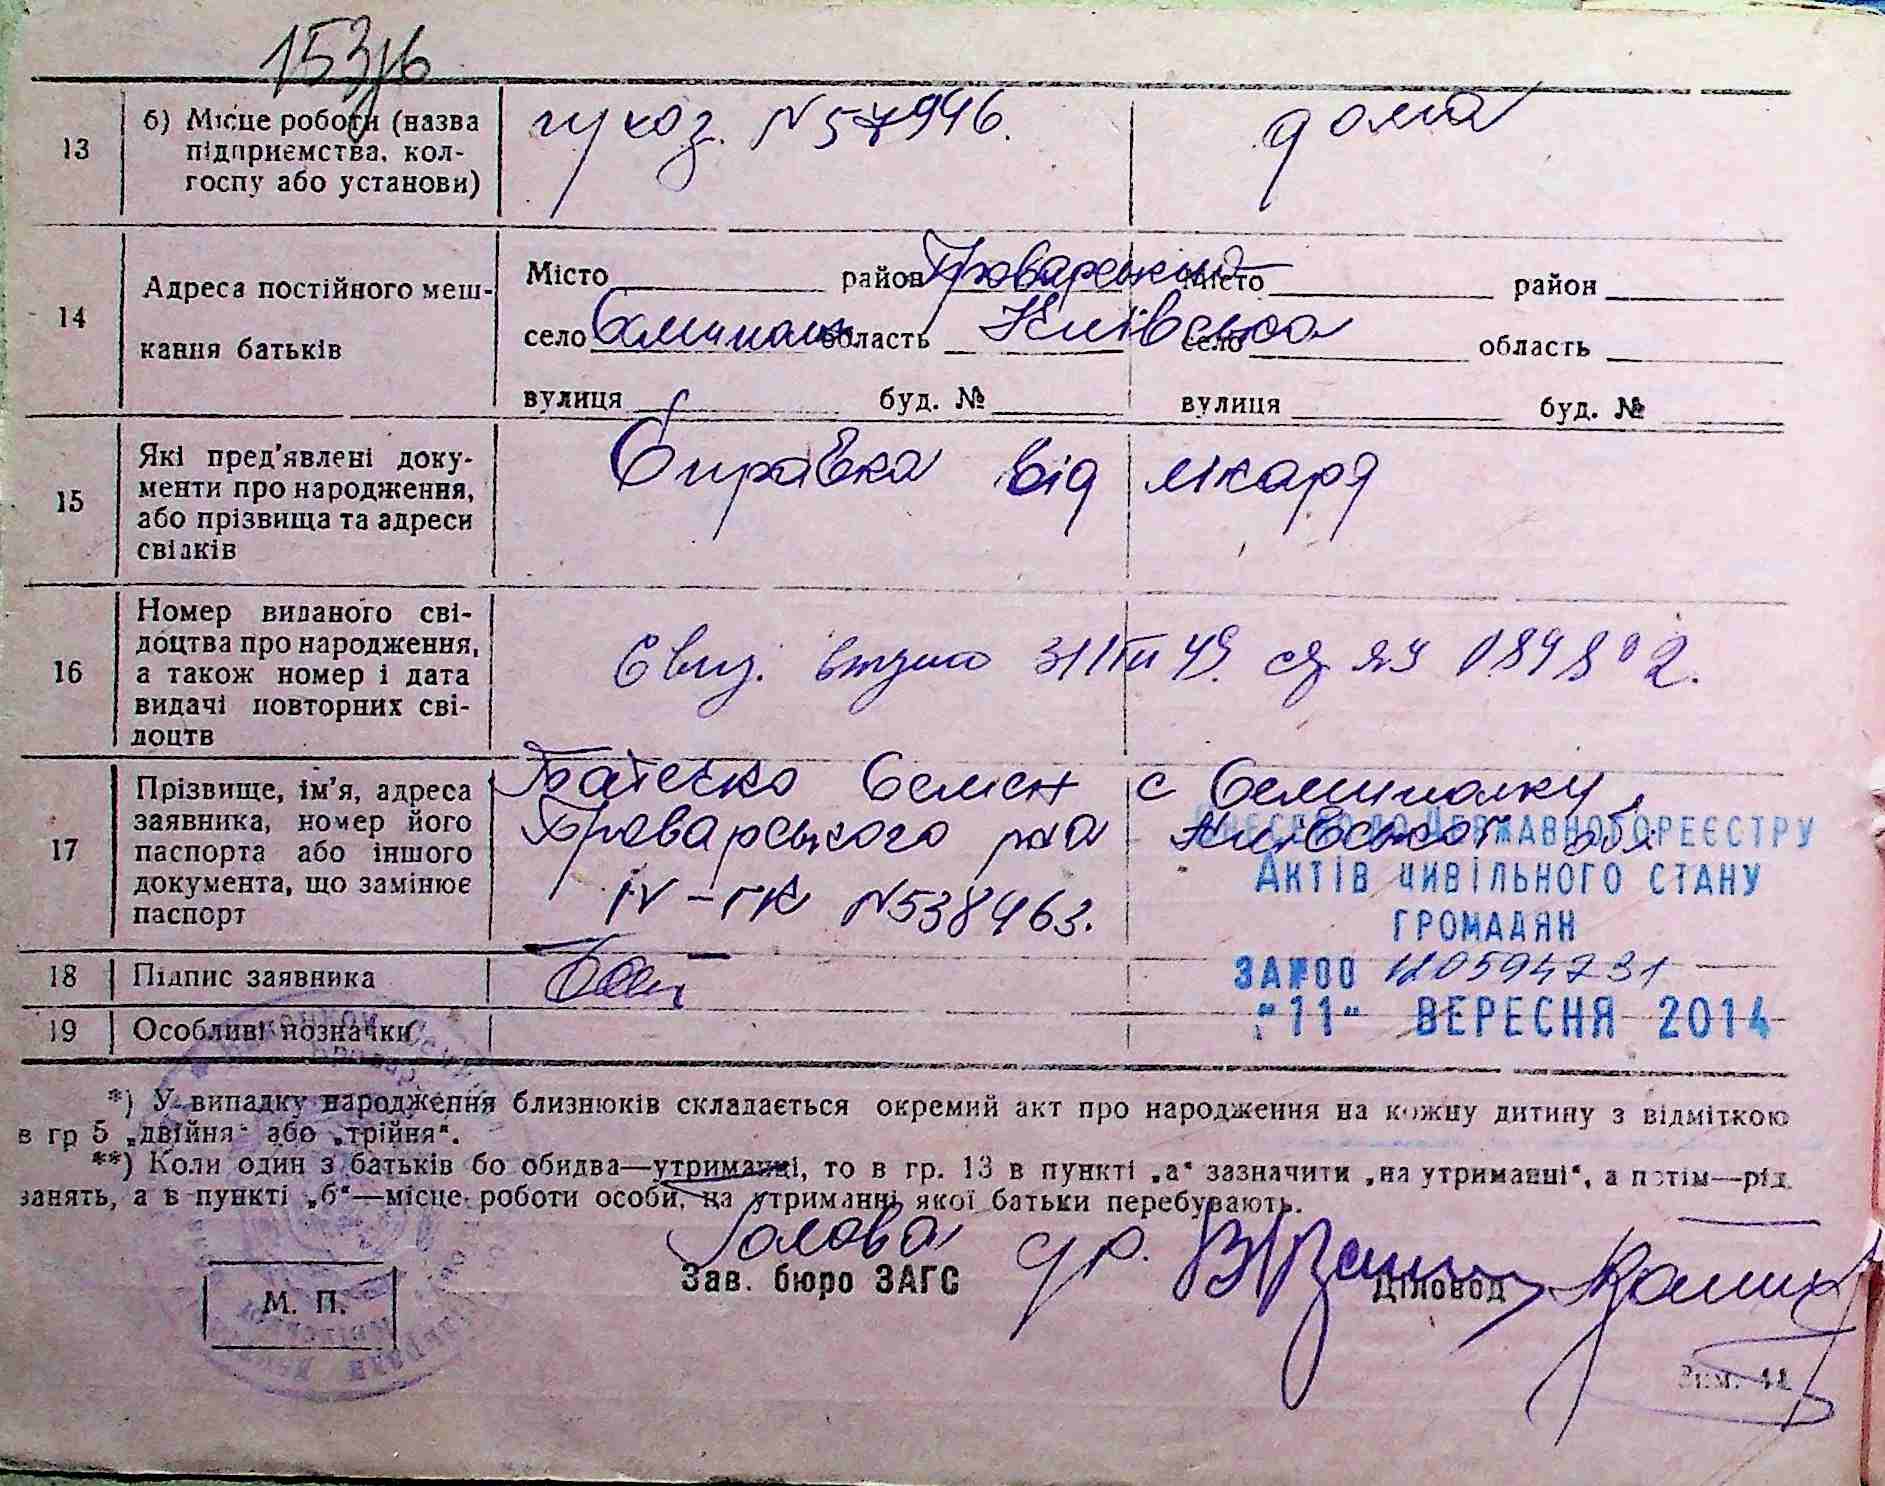 153/6
13
б) Місце роботи (назва
підприємства, кол-
госпу або установи)
N 57946.
дома
14
Адреса постійного меш-
кання батьків
Місто район Броварський Місто район
село Семиполк область Київська село область
вулиця буд. № вулиця буд. №
15
Які пред'явлені доку-
менти про народження,
або прізвища та адреси
свідків
Справка від лікаря
16
Номер виданого сві-
доцтва про народження,
а також номер і дата
видачі повторних сві-
доцтв
17
Прізвище, ім'я, адреса
заявника, номер його
паспорта або іншого
документа, що замінює
паспорт
Батечко Семен с Семиполку
Броварського р-на Київської обл
IV-ГК N538463.
ВНЕСЕНО ДО ДЕРЖАВНОГО РЕЄСТРУ
АКТІВ ЦИВІЛЬНОГО СТАНУ
ГРОМАДЯН
ЗА №00
"11" ВЕРЕСНЯ 2014
18
Підпис заявника
19
Особливі позначки
*) У випадку народження близнюків складається окремий акт про народження на кожну дитину з відміткою
в гр 5 „двійня" або „трійня".
**) Коли один з батьків бо обидва—утриманці, то в гр. 13 в пункті „а" зазначити „на утриманні", а потім—рід
занять, а в пункті „б"—місце роботи особи, на утриманні якої батьки перебувають.
Голова
Зав. бюро ЗАГС
Діловод
М. П.